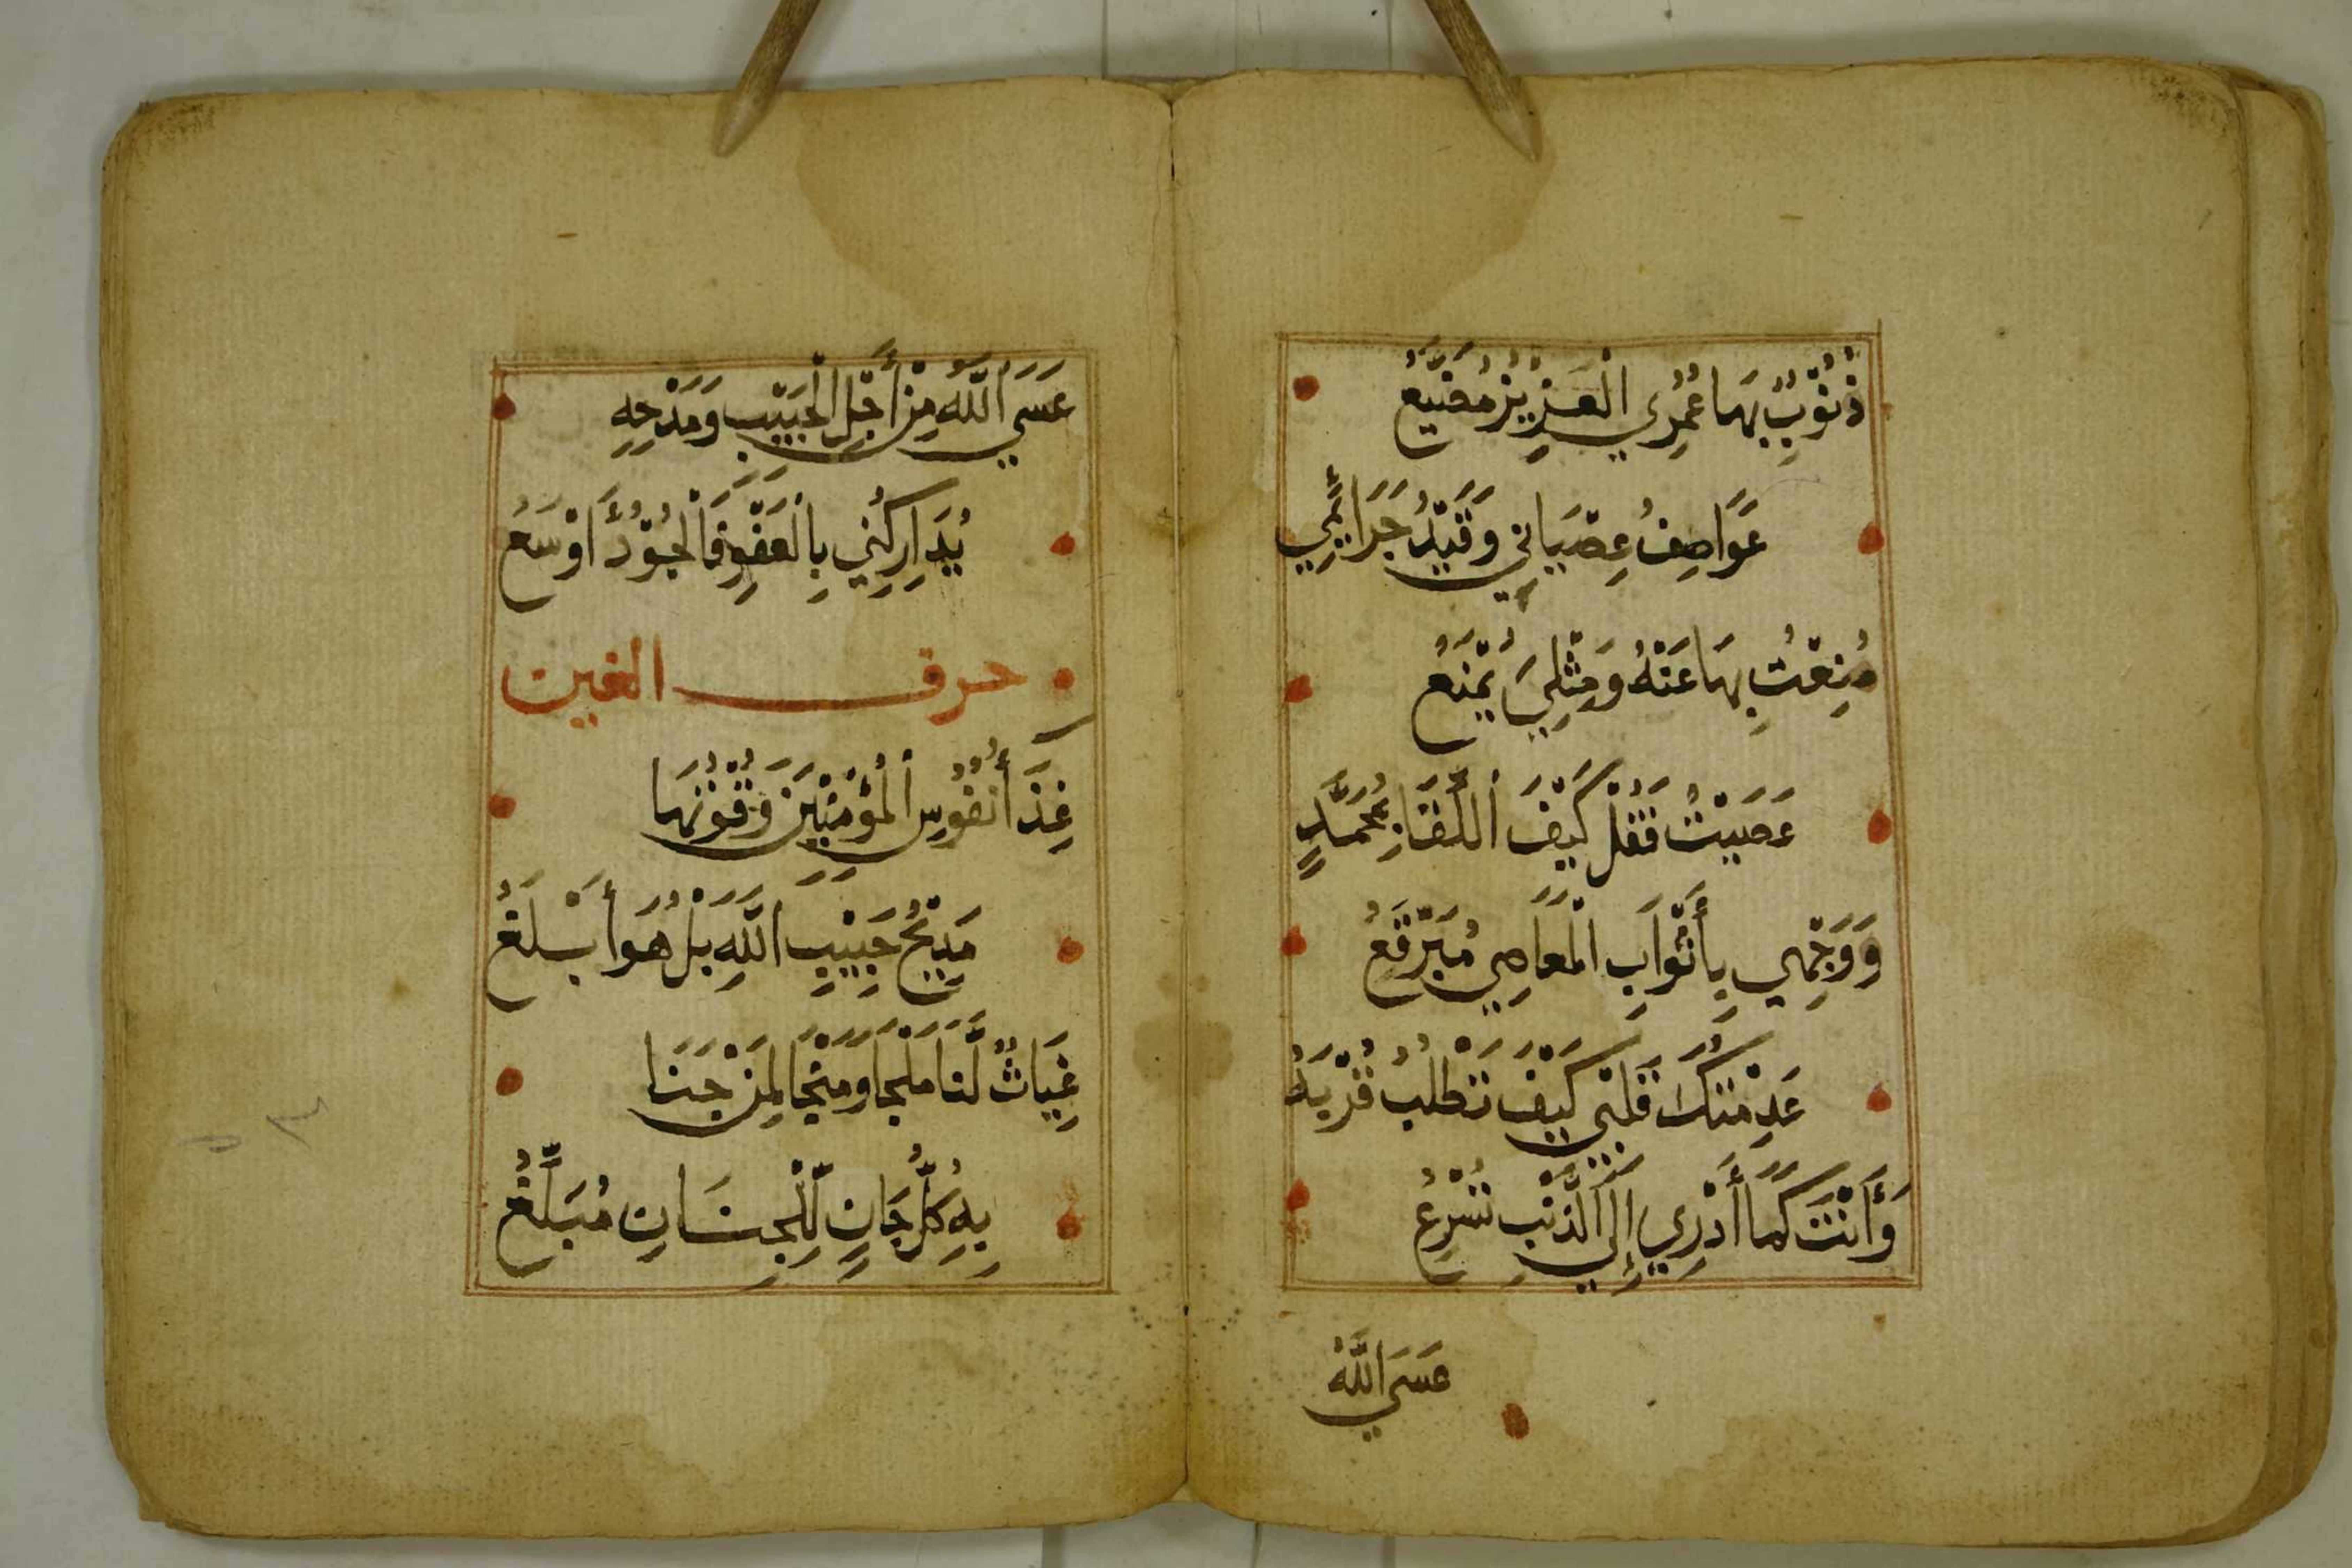 ذُنُوْبٌ بِهَا عُمْرِي الْعَزِيْزُ مُضَيَّعُ
عَوَاصِفُ عِصْيَانِي وَقَيْدُ جَرَائِمِي
مُنِعْتُ بِهَا عَنْهُ وَمِثْلِيَ يُمْنَعُ
عَصَيْتُ فَقُلْ كَيْفَ اللِّقَا بِمُحَمَّدٍ
وَوَجْهِي بِأَثْوَابِ الْمَعَاصِي مُبَرْقَعُ
عَدِمْتُكَ قَلْبِي كَيْفَ تَطْلُبُ قُرْبَهُ
وَأَنْتَ كَمَا أَدْرِي إِلَى الذَّنْبِ تُسْرِعُ
عَسَى اللَّهُ
عَسَى اللَّهُ مِنْ أَجْلِ الْحَبِيْبِ وَمَدْحِهِ
يُدَارِكُنِي بِالْعَفْوِ فَالْجُوْدُ أَوْسَعُ
حرف الغين
غِذَا أَنْفُوسِ الْمُؤْمِنِيْنَ وَقُوْتُهَا
مَدِيْحُ حَبِيْبِ اللَّهِ بَلْ هُوَ أَبْلَغُ
غِيَاثٌ لَنَا مَلْجَا وَمَنْجَا لِمَنْ جَنَا
بِهِ كُلُّ جَانٍ لِلْجِنَانِ مُبَلَّغُ